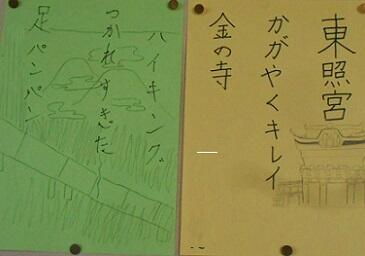 東照宮
かがやくキレイ
金の寺
ハイキング
つかれすぎた
足パンパン